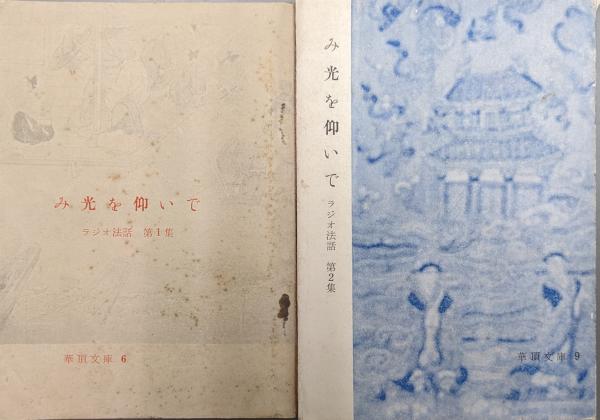 み光を仰いで
ラジオ法話 第1集
華頂文庫 6
み光を仰いで
ラジオ法話 第2集
華頂文庫 9